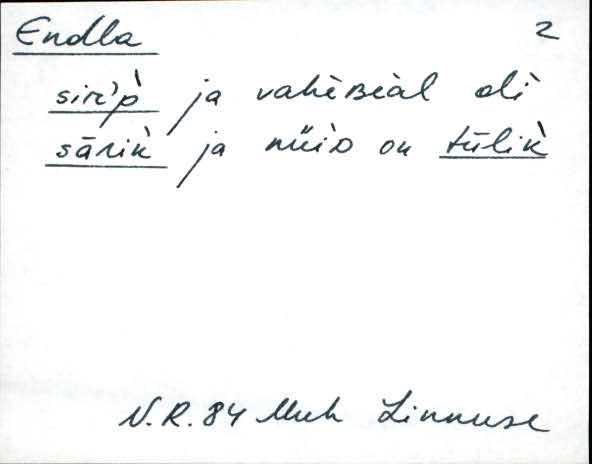 Endla 2
siŕp̀ ja vahèʙèàl olì
sāʀik̀ ja nüiᴅ on tūlik̀
N.R. 84 Muh Linnuse